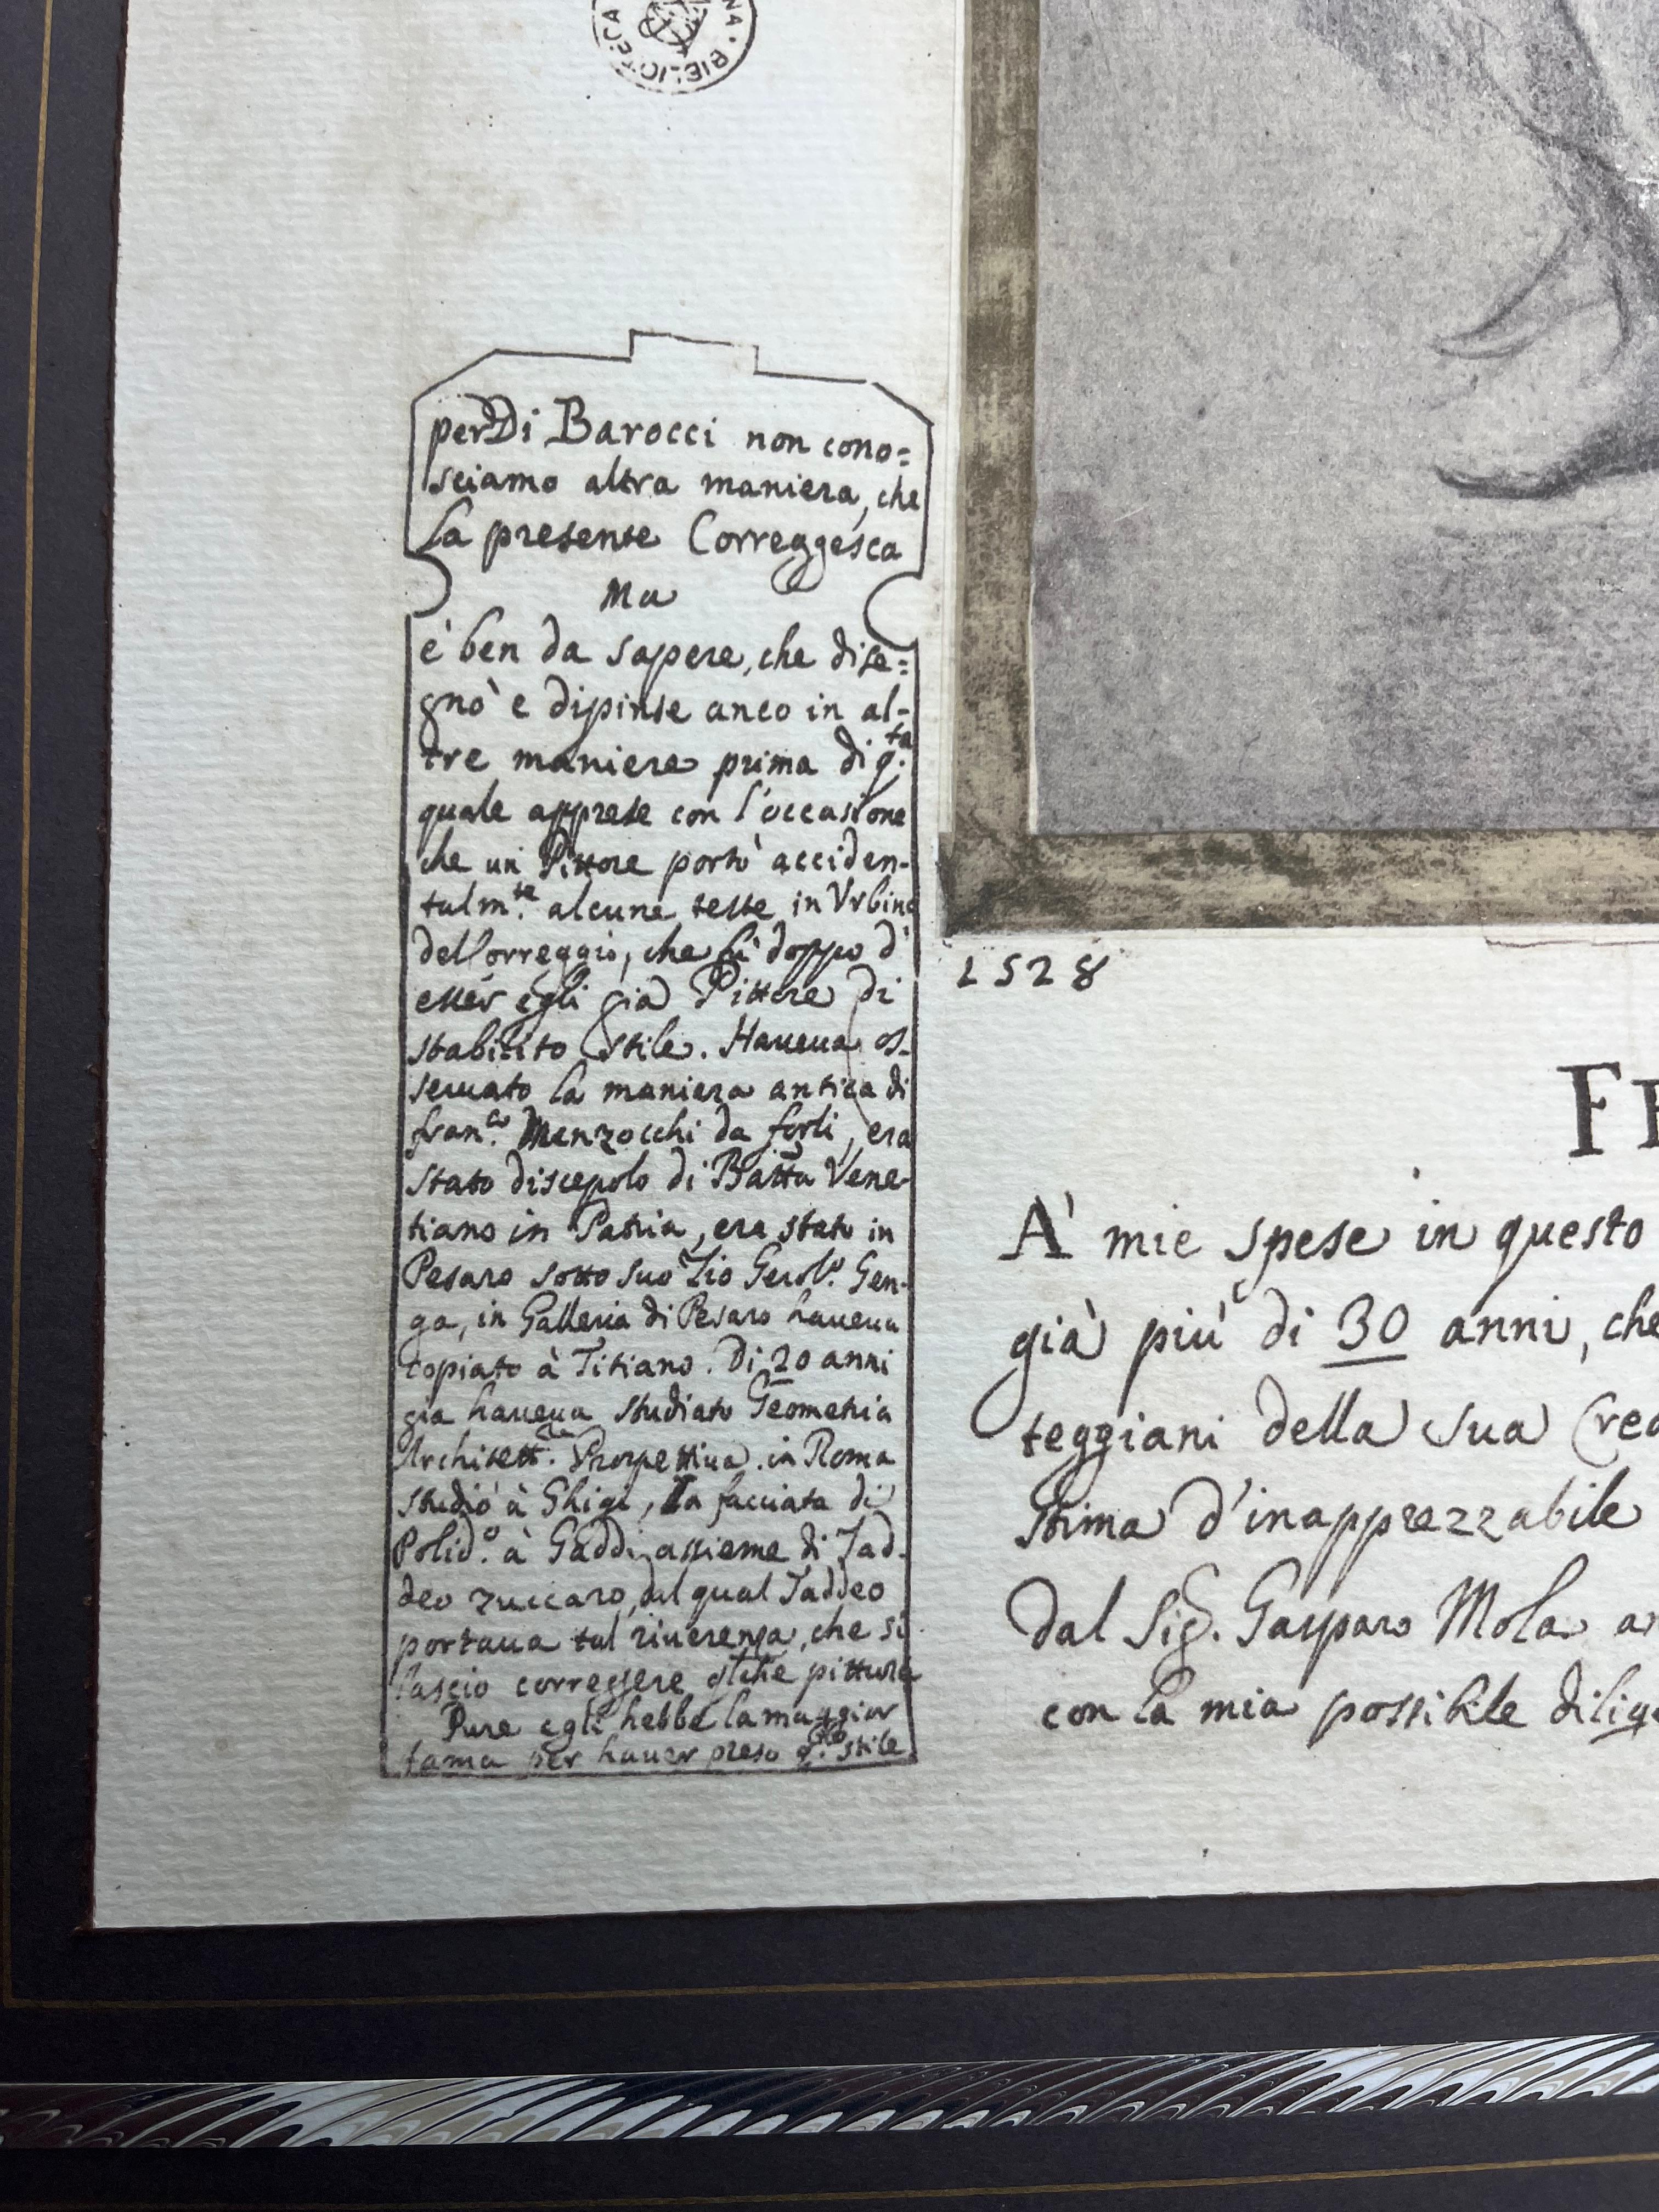 BIBLIOTECA
NA
per Di Barocci non cono=
sciamo altra maniera, che
la presente Correggesca
Ma
è ben da sapere, che dise=
gnò e dipinse anco in al-
tre maniere prima di q.ta
quale apprese con l'occasione
che un Pittore portò acciden-
talm.te alcune teste in Vrbino
del Correggio, che fù doppo d'
esser egli già Pittore di
stabilito stile. Haueua os-
seruato la maniera antica di
Fran.co Menzocchi da forlì, era
stato discepolo di Batta Vene-
tiano in Patria, era stato in
Pesaro sotto suo Zio Gerol.o Gen-
ga, in Galleria di Pesaro haueua
copiato à Titiano. Di 20 anni
già haueua studiato Geometria
Architett.ra Prospettiua. in Roma
studiò à Ghigi, la facciata di
Polid.o à Gaddi, assieme di Tad-
deo Zuccaro, dal qual Taddeo
portaua tal riuerenza, che si
lasciò correggere qlche pittura
Pure egli hebbe la maggior
fama per hauer preso q.sto stile
1528
FE
A' mie spese in questo
già più di 30 anni, che
teggiani della sua
stima d'inapprezzabile
dal Sig. Gasparo Mola
con la mia possibile